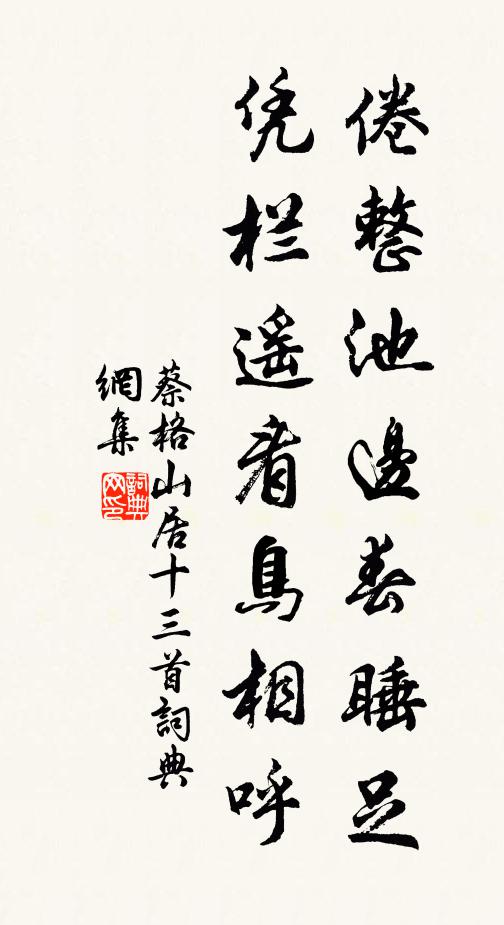 倦整池邊春睡足
凭栏遥看鳥相呼
蔡格山居十三首詞典
網集
詞典
网印